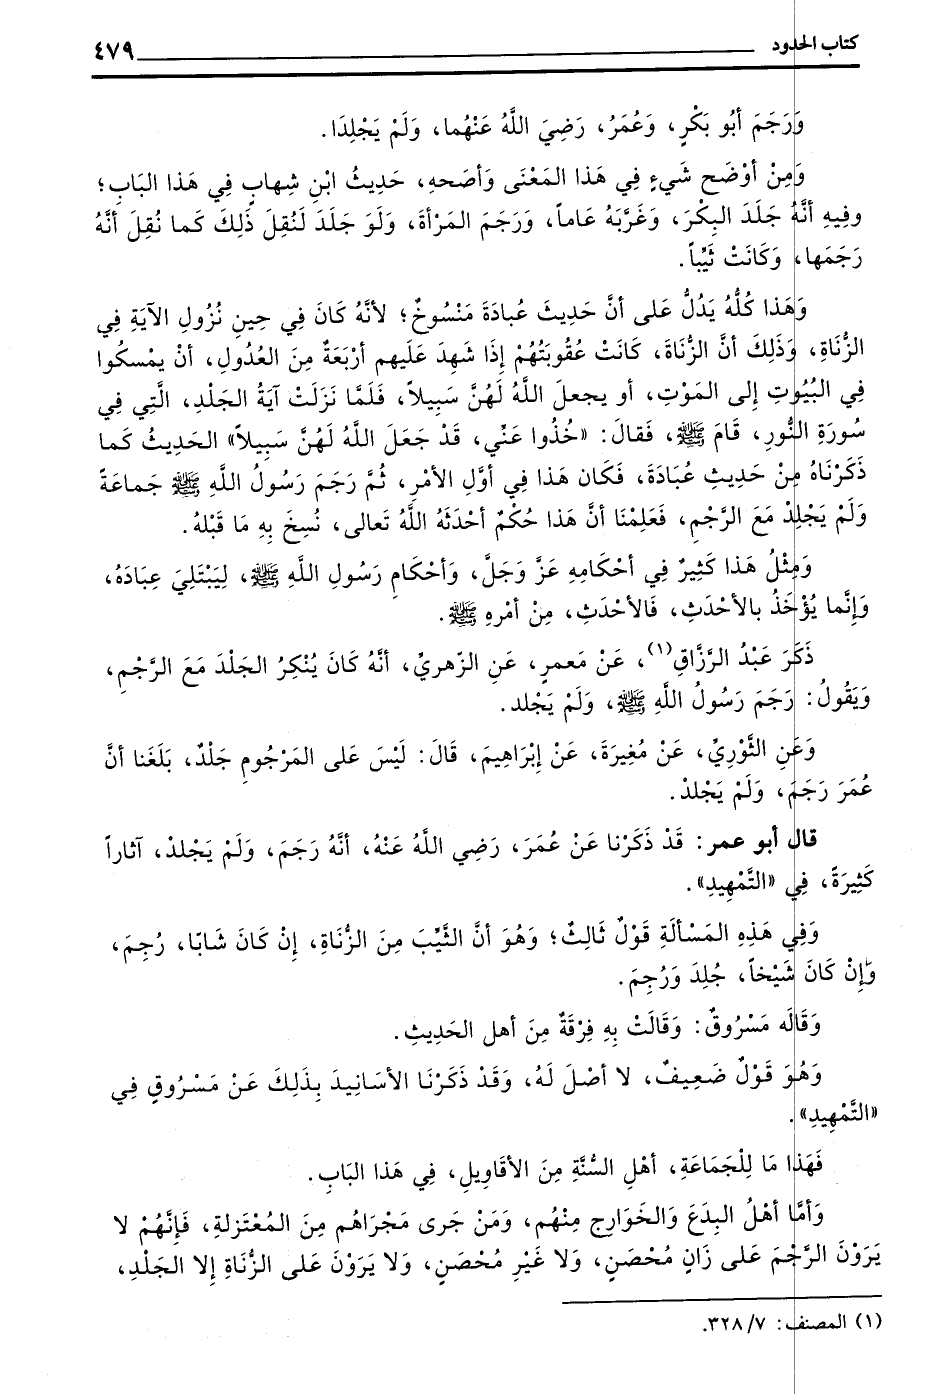 كتاب الحدود ٤٧٩
وَرَجَمَ أَبُو بَكْرٍ، وَعُمَرُ، رَضِيَ اللَّهُ عَنْهُما، وَلَمْ يَجْلِدَا.
وَمِنْ أوْضَح شَيْءٍ فِي هَذَا المَعْنَى وَأصَحه، حَدِيثُ ابْنِ شِهابٍ فِي هَذَا البَابِ؛
وفِيهِ أنَّهُ جَلَدَ البِكْرَ، وَغَرَّبَهُ عَاماً، وَرَجَمَ المَرْأةَ، وَلَوَ جَلَدَ لَنُقِلَ ذَلِكَ كَما نُقِلَ أنَّهُ
رَجَمَها، وَكَانَتْ ثَيِّباً.
وَهَذا كُلُّهُ يَدُلُّ عَلى أنَّ حَدِيثَ عُبادَةَ مَنْسُوخٌ؛ لأنَّهُ كَانَ فِي حِينِ نُزُولِ الآيَةِ فِي
الزُّنَاةِ، وَذَلِكَ أنَّ الزُّنَاةَ، كَانَتْ عُقُوبَتُهُمْ إِذَا شَهِدَ عَلَيهم أرْبَعَةٌ مِنَ العُدُولِ، أنْ يمْسكُوا
فِي البُيُوتِ إِلى المَوْتِ، أو يجعلَ اللَّهُ لَهُنَّ سَبِيلاً، فَلَمَّا نَزَلَتْ آيَةُ الجَلْدِ، الَّتِي فِي
سُورَةِ النُّورِ، قَامَ ﷺ، فَقالَ: «خُذُوا عَنِّي، قَدْ جَعَلَ اللَّهُ لَهُنَّ سَبِيلاً» الحَدِيثُ كَما
ذَكَرْنَاهُ مِنْ حَدِيثِ عُبَادَةَ، فَكَان هَذا فِي أوَّلِ الأمْرِ، ثُمَّ رَجَمَ رَسُولُ اللَّهِ ﷺ جَماعَةً
وَلَمْ يَجْلِدْ مَعَ الرَّجْمِ، فَعَلِمْنَا أنَّ هَذا حُكْمٌ أحْدَثَهُ اللَّهُ تَعالى، نُسِخَ بِهِ مَا قَبْلهُ.
وَمِثْلُ هَذا كَثِيرٌ فِي أحْكَامِهِ عَزَّ وَجَلَّ، وَأحْكَامِ رَسُولِ اللَّهِ ﷺ، لِيَبْتَلِيَ عِبَادَهُ،
وَإِنَّما يُؤْخَذُ بالأحْدَثِ، فَالأحْدَثِ، مِنْ أمْرِهِ ﷺ.
ذَكَرَ عَبْدُ الرَّزَّاقِ(١)، عَنْ مَعمرٍ، عَنِ الزّهريِّ، أنَّهُ كَانَ يُنْكِرُ الجَلْدَ مَعَ الرَّجْمِ،
وَيَقُولُ: رَجَمَ رَسُولُ اللَّهِ ﷺ، وَلَمْ يَجْلد.
وَعَنِ الثَّوْرِيِّ، عَنْ مُغِيرَةَ، عَنْ إِبْرَاهِيمَ، قَالَ: لَيْسَ عَلى المَرْجُومِ جَلْدٌ، بَلَغَنا أنَّ
عُمَرَ رَجَمَ، وَلَمْ يَجْلدْ.
قال أبو عمر: قَدْ ذَكَرْنا عَنْ عُمَرَ، رَضِي اللَّهُ عَنْهُ، أنَّهُ رَجَمَ، وَلَمْ يَجْلدْ، آثاراً
كَثِيرَةً، فِي «التَّمْهِيدِ».
وَفِي هَذِهِ المَسْألَةِ قَوْلٌ ثَالِثٌ؛ وَهُوَ أنَّ الثَّيِّبَ مِنَ الزُّنَاةِ، إِنْ كَانَ شَابًا، رُجِمَ،
وَإِنْ كَانَ شَيْخاً، جُلِدَ وَرُجِمَ.
وَقَالَه مَسْرُوقٌ: وَقَالَتْ بِهِ فِرْقَةٌ مِنَ أهل الحَدِيثِ.
وَهُوَ قَوْلٌ ضَعِيفٌ، لا أصْلَ لَهُ، وَقَدْ ذَكَرْنَا الأسَانِيدَ بِذَلِكَ عَنْ مَسْرُوقٍ فِي
«التَّمْهِيدِ».
فَهَذَا مَا لِلْجَمَاعَةِ، أهْلِ السُّنَّةِ مِنَ الأقَاوِيلِ، فِي هَذَا البَابِ.
وَأمَّا أهْلُ البِدَعَ وَالخَوارِج مِنْهُم، وَمَنْ جَرى مَجْرَاهُم مِنَ المُعْتَزلةِ، فَإِنَّهُمْ لا
يَرَوْنَ الرَّجْمَ عَلى زَانٍ مُحْصَنٍ، وَلا غَيْرِ مُحْصَنٍ، وَلا يَرَوْنَ عَلى الزُّنَاةِ إِلا الجَلْدِ،
(١) المصنف: ٣٢٨/٧.